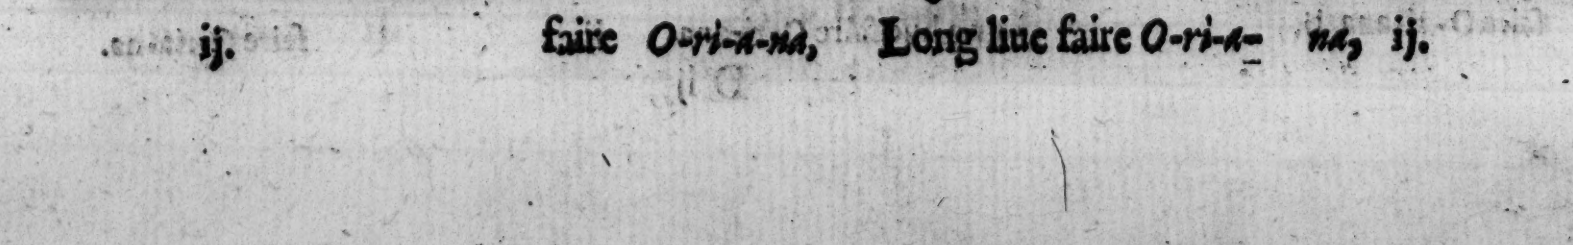 ij. faire O-ri-a-na, Long liue faire O-ri-a- na, ij.